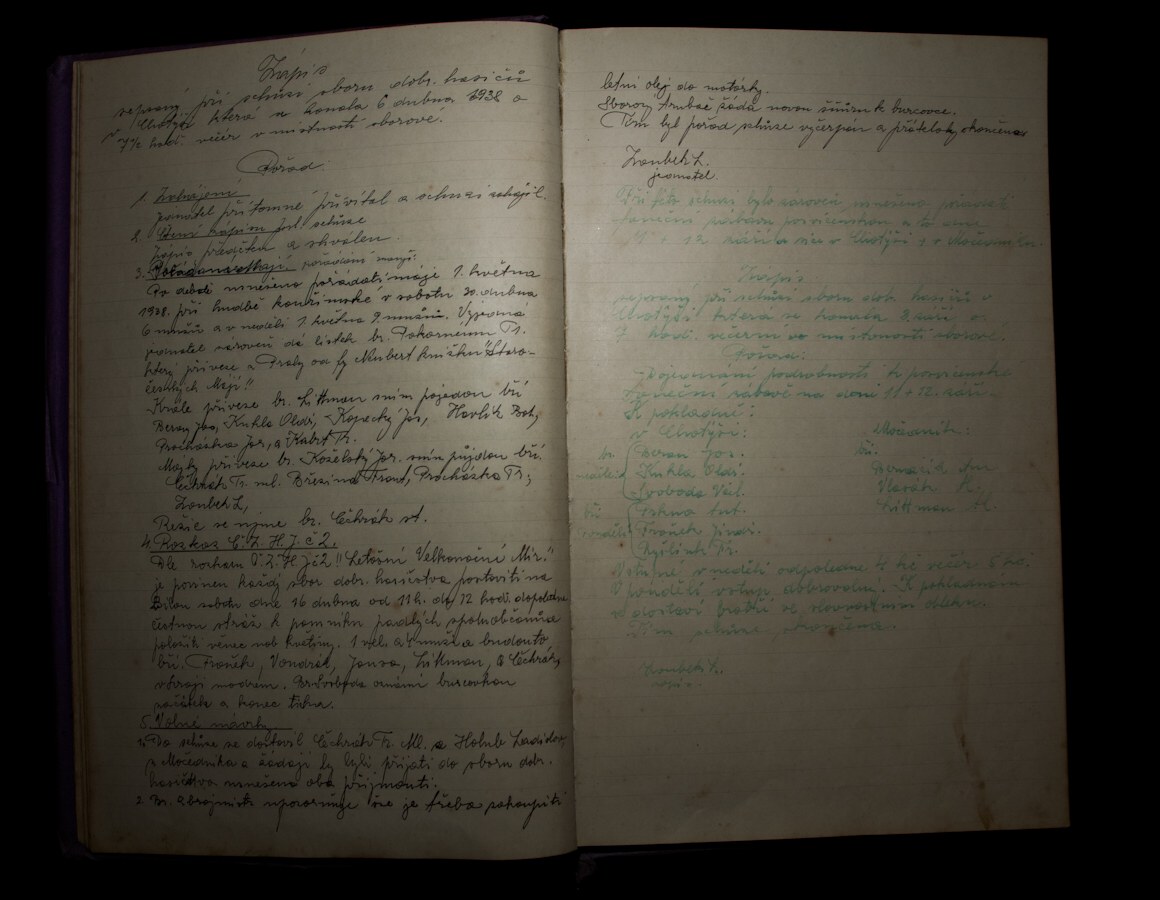 Zápis
sepsaný při schůzi sboru dobr. hasičů
v Chotýši která se konala 6 dubna 1938 o
7½ hod. večer v místnosti sborové.
Pořad.
1. Zahájení
jednatel přítomné přivítal a schuzi zahájil.
2. Čtení zápisu posl. schůze
Zápis přečten a schválen.
3. pořádání máje:
Po debatě usneseno pořádati máje 1. května
1938. při hudbě kouřimské v sobotu 30. dubna
6 mužů a v neděli 1. května 9 mužů. Vyzná
jednatel zároveň dá lístek br. Pokornému Fr.
který přiveze z Prahy od fy Neubert knížku "Staro-
českých Májí"
Krále přiveze br. Littman s ním pojedou bří
Beran Jos, Kukla Oldř, Kopecký Jos, Havlík Boh,
Procházka Jos, a Kabrt Fr.
Májky přiveze br. Košelský Jos. s ním půjdou bří.
Čchrák Fr. ml. Březina Frant, Procházka Fr;
Zoubek L,
Režie se ujme br. Čchrák st.
4. Rozkaz Č. Z. H. J. č 2.
Dle rozkazu O. Ž. H. J. č 2 "Letošní Velkonoční Mír"
je povinen každý sbor dobr. hasičstva postaviti na
Bílou sobotu dne 16 dubna od 11 h. do 12 hodi. dopoledne
čestnou stráž k pomníku padlých spoluobčanů a
položit věnec neb květiny. 1 vel. a 4 muži a budou to
bří. Franěk, Vondrák, Janva, Littman, a Čchrák,
v kroji modrém. Br. Svoboda oznámí burcovkou
začátek a konec ticha.
5. Volné návrhy
1. Do schůze se dostavil Čchrák Fr. Ml. a Holub Ladislav
z Močedníka a žádají by byli přijati do sboru dobr.
hasičstva. usneseno oba přijmouti.
2. Br. zbrojmistr upozorňuje že je třeba zakoupiti
letní olej do motorky.
Sborový trubač žádá novou šňůru k burcovce.
Tím byl pořad schůze vyčerpán a přátelsky skončena
Zoubek L.
jednatel.
Při této schuzi bylo zároveň usneseno pořádati
taneční zábavu posvícenskou a to dne
11 + 12 září a sice v Chotýši i v Močedníku.
Zápis
sepsaný při schůzi sboru dob. hasičů v
Chotýši která se konala 2. září o
hod. večerní ve místnosti sborov.
Pořad:
Pojednání podrobností k posvícenské
taneční zábavě na dnui 11 + 12. září.
K pokladně:
v Chotýši: Močedník:
br. Beran Jos. bří.
neděle Kukla Oldř. Bernard Ant
Svoboda Vác. Novák K.
bří Trkna Ant. Littman M.
pondělí Franěk Jindř.
Fr.
Vstupné v neděli odpoledne 4 kč večer 5 kč.
V pondělí vstup dobrovolný. K pokladnám
se dostaví bratři ve slavnostním obleku.
Tím schůze skončena.
Zoubek L.